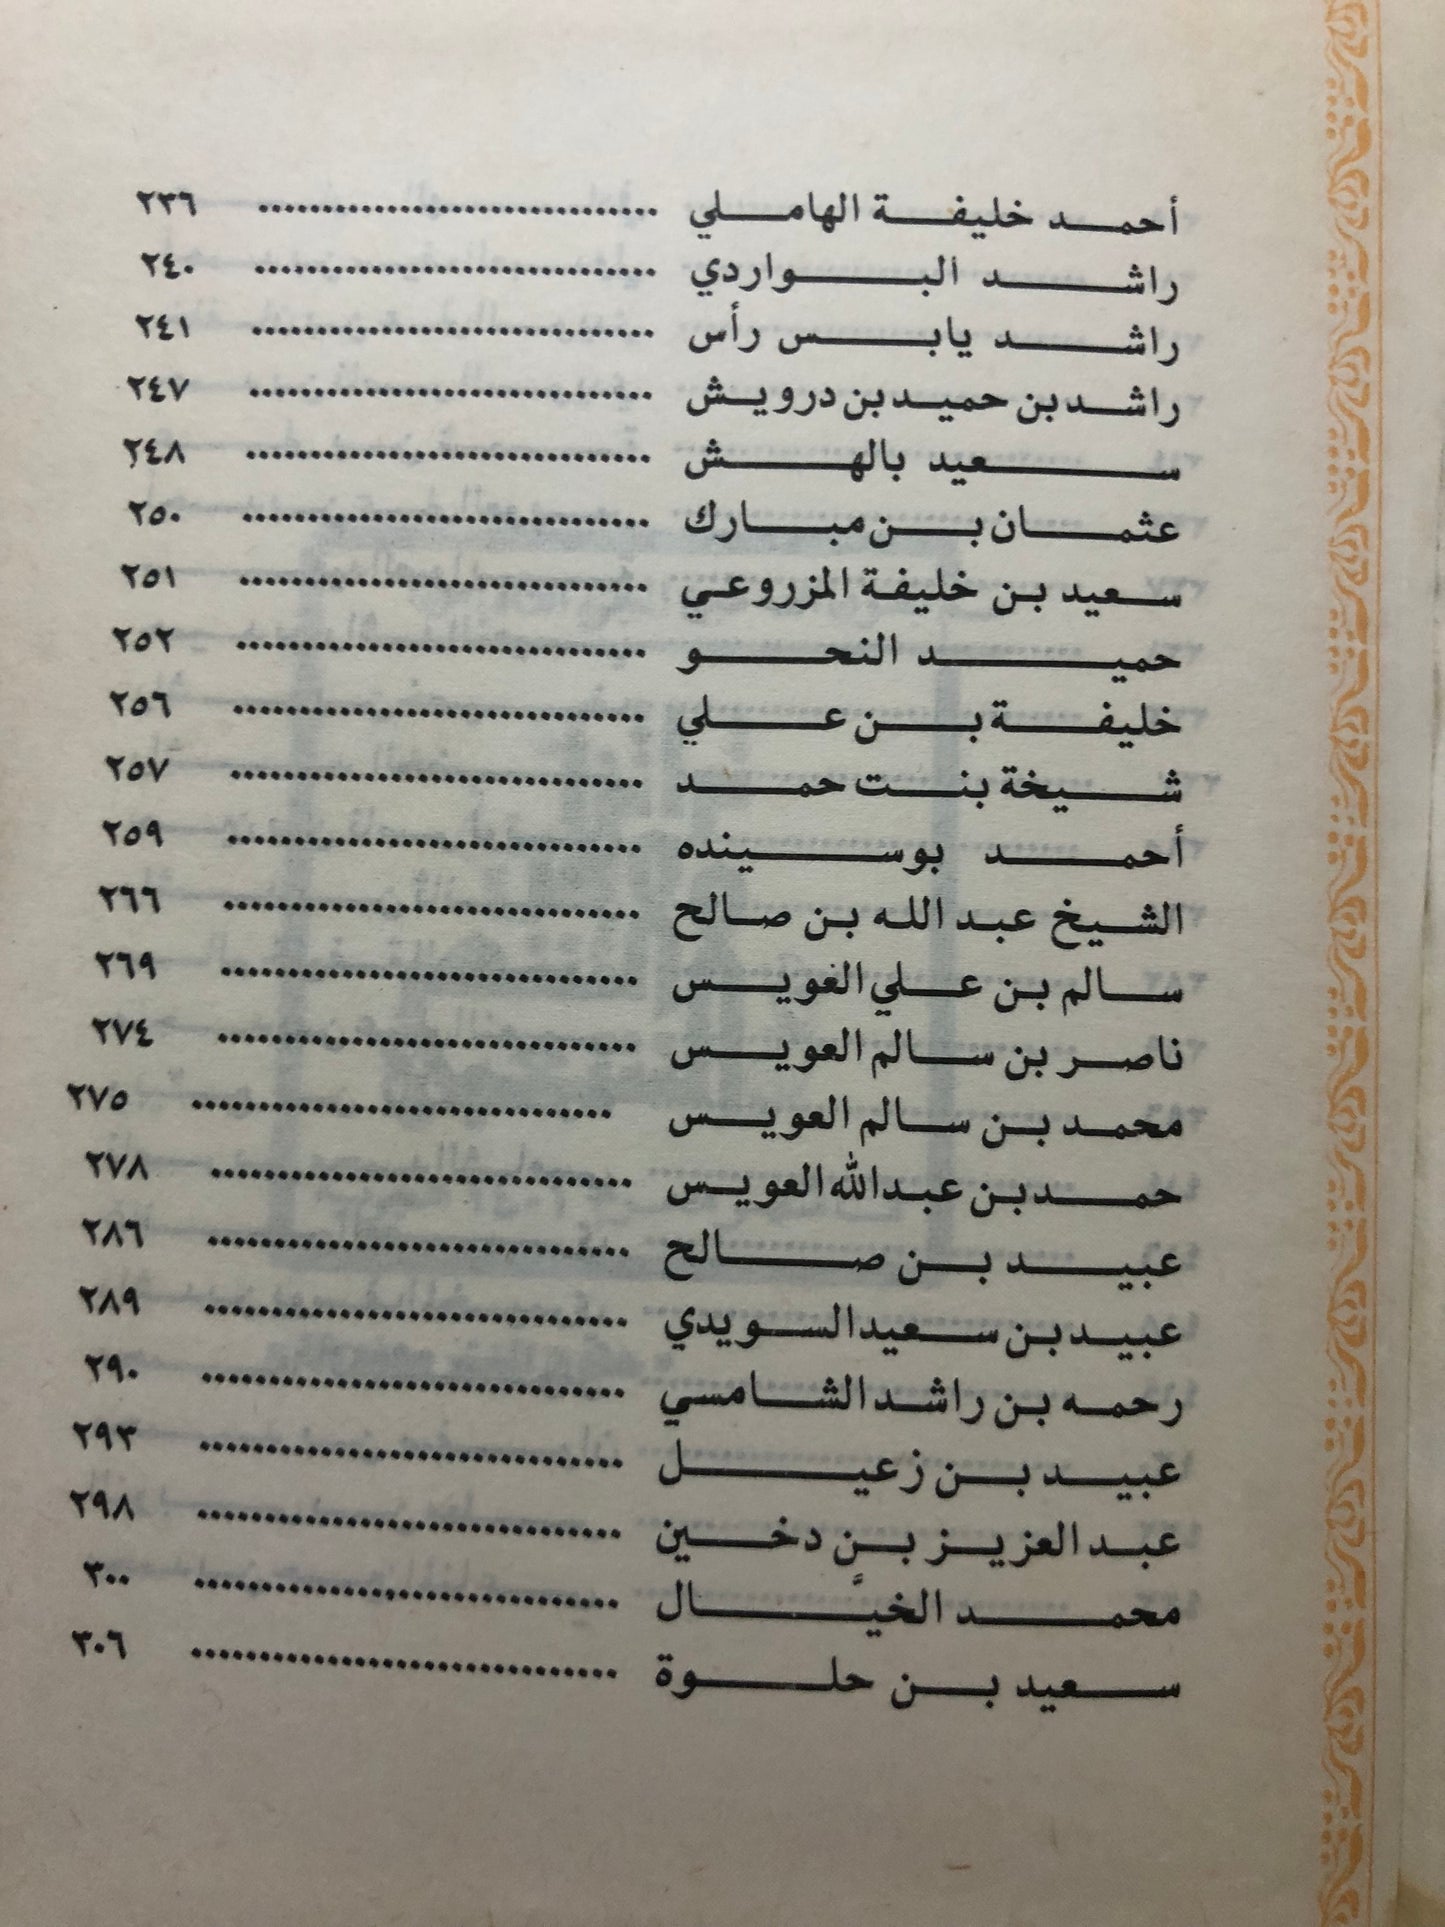 أحمد خليفة الهاملي .............................. ٢٣٦
راشد البواردي .............................. ٢٤٠
راشد يابس رأس .............................. ٢٤١
راشد بن حميد بن درويش .............................. ٢٤٧
سعيد بالهش .............................. ٢٤٨
عثمان بن مبارك .............................. ٢٥٠
سعيد بن خليفة المزروعي .............................. ٢٥١
حميد النحو .............................. ٢٥٢
خليفة بن علي .............................. ٢٥٦
شيخة بنت حمد .............................. ٢٥٧
أحمد بوسينده .............................. ٢٥٩
الشيخ عبد الله بن صالح .............................. ٢٦٦
سالم بن علي العويس .............................. ٢٦٩
ناصر بن سالم العويس .............................. ٢٧٤
محمد بن سالم العويس .............................. ٢٧٥
حمد بن عبدالله العويس .............................. ٢٧٨
عبيد بن صالح .............................. ٢٨٦
عبيد بن سعيد السويدي .............................. ٢٨٩
رحمه بن راشد الشامسي .............................. ٢٩٠
عبيد بن زعيل .............................. ٢٩٣
عبد العزيز بن دخين .............................. ٢٩٨
محمد الخيَّال .............................. ٣٠٠
سعيد بن حلوة .............................. ٣٠٦